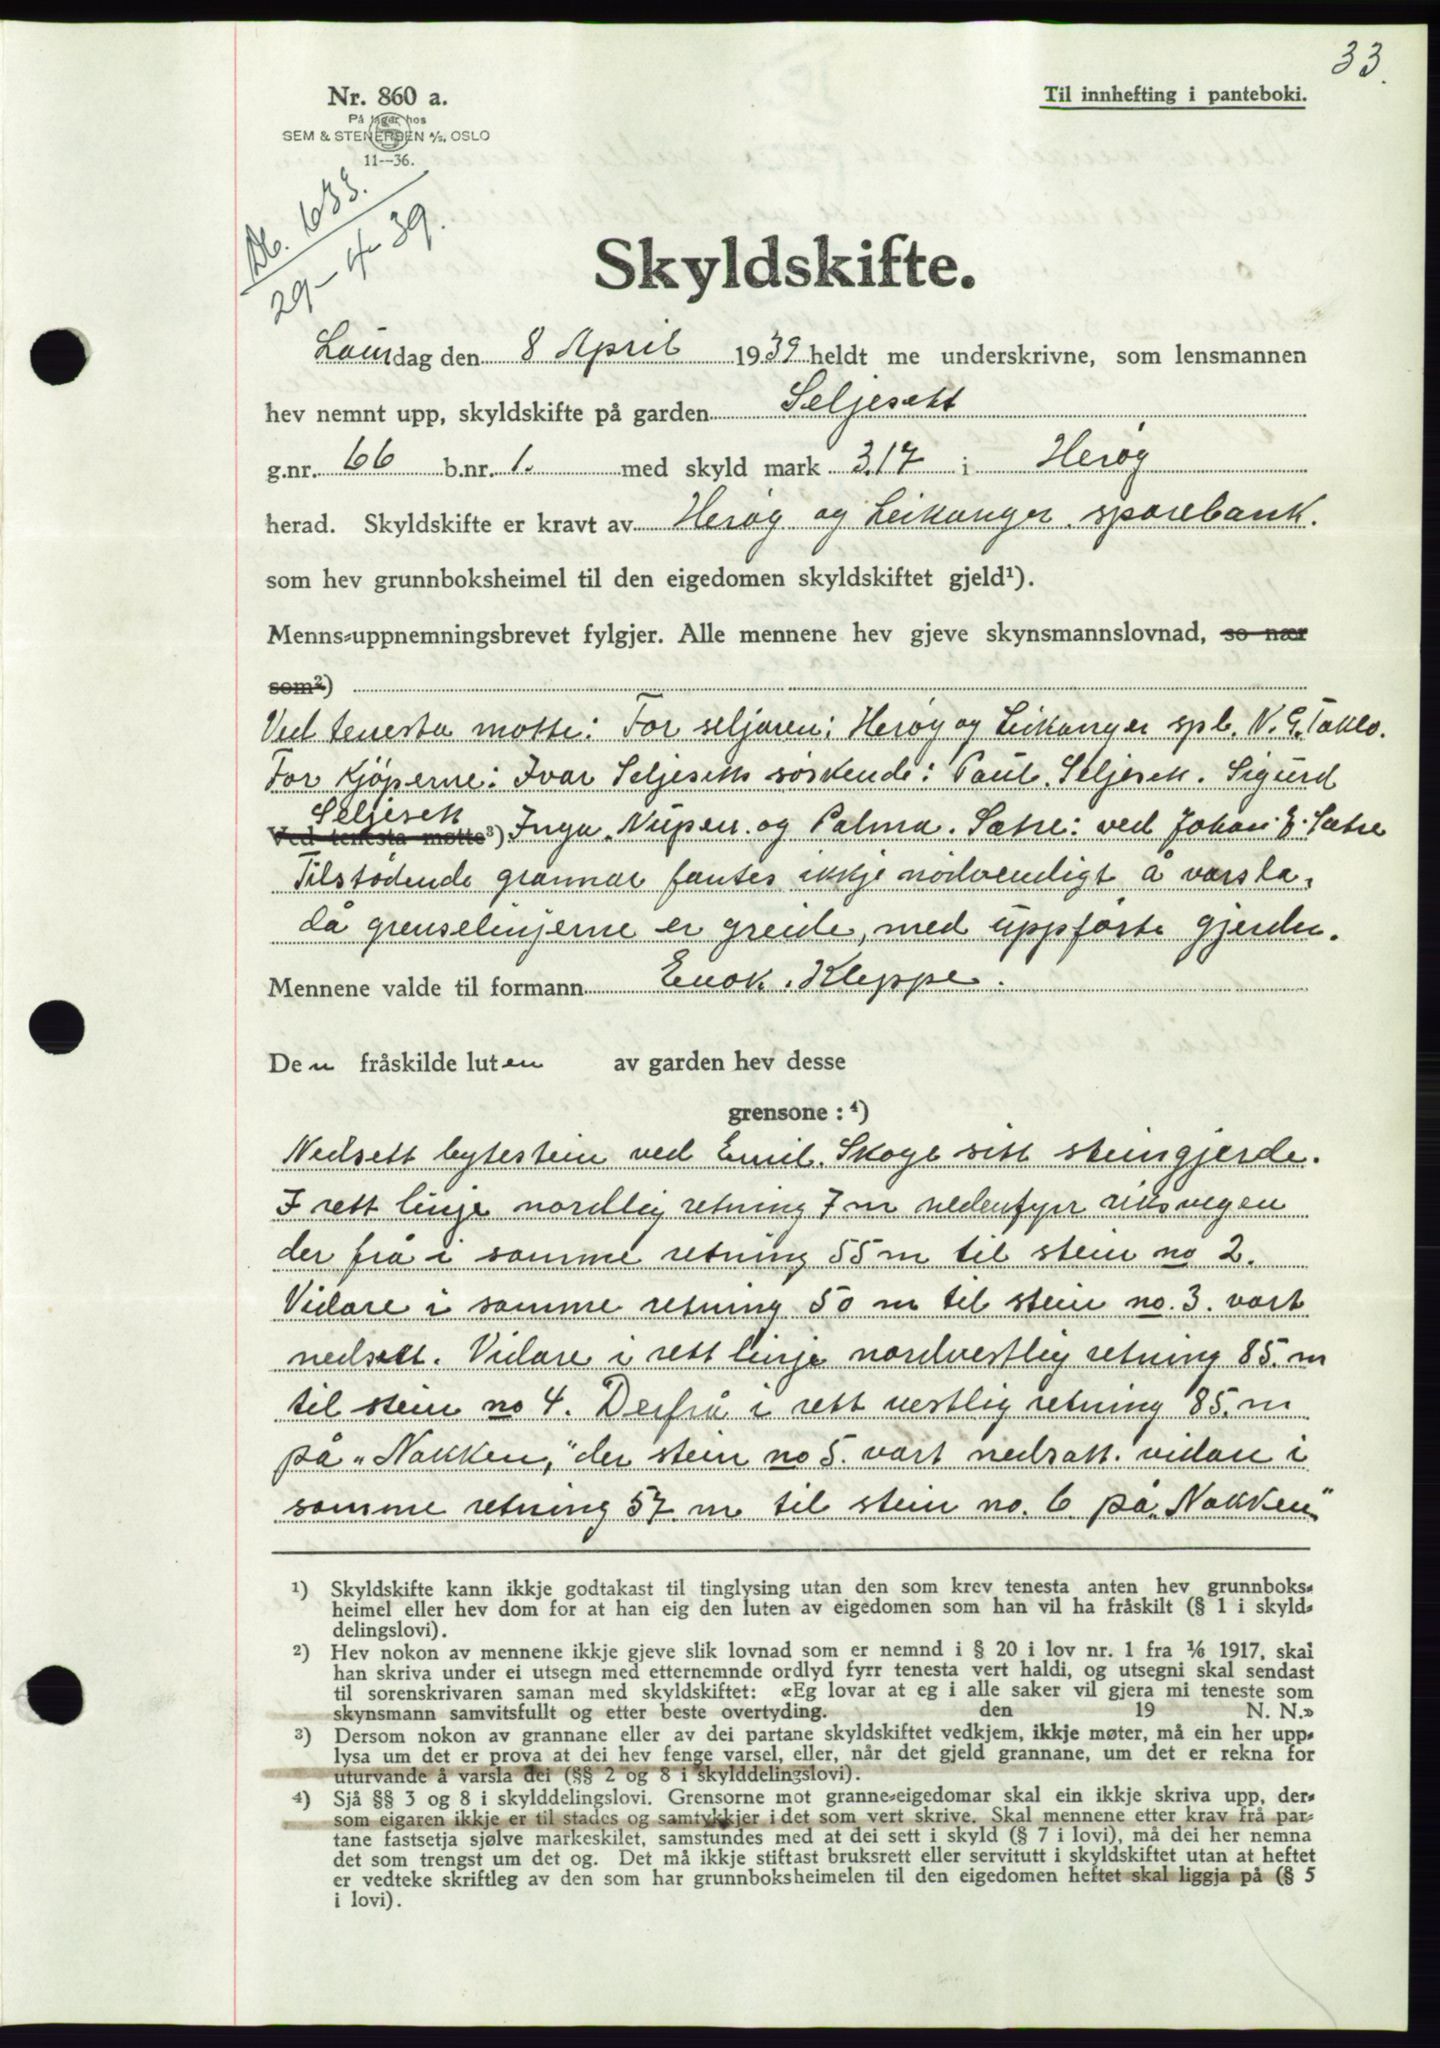 33.
Nr. 860 a.
På lager hos
SEM & STENERSEN A/S, OSLO
11--36.
Til innhefting i panteboki.
Db. 633.
29-4-39.
Skyldskifte.
Laurdag den 8 April 1939 heldt me underskrivne, som lensmannen
hev nemnt upp, skyldskifte på garden Seljesett
g.nr. 66 b.nr. 1. med skyld mark 3.17 i Herøy
herad. Skyldskifte er kravt av Herøy og Leikanger sparebank.
som hev grunnboksheimel til den eigedomen skyldskiftet gjeld¹).
Menns-uppnemningsbrevet fylgjer. Alle mennene hev gjeve skynsmannslovnad, so nær
som²)
Ved tenesta møtte: For seljaren: Herøy og Leikanger spb. N. G. Taklo.
For kjöperne: Ivar Seljesetts söskende: Paul. Seljesett. Sigurd
Seljesett
Ved tenesta møtte³) Inga. Nupen. og Palma. Sætre: ved Johan E. Sætre
Tilstödende grannar fantes ikkje nödvendigt å varsla,
då grenselinjerne er greide, med uppförte gjerder.
Mennene valde til formann Enok. Kleppe.
Den fråskilde luten av garden hev desse
grensone : ⁴)
Nedsett bytestein ved Emil. Skoge sitt steingjerde.
I rett linje nordlig retning 7 m nedenfyrr riksvegen
der frå i samme retning 55 m til stein no 2.
Vidare i samme retning 50 m til stein no. 3. vart
nedsett. Vidare i rett linje nordvestlig retning 85. m
til stein no 4. Derfrå i rett vestlig retning 85. m
på "Nakken," der stein no 5. vart nedsatt. vidare i
samme retning 57. m til stein no. 6 på "Nakken"
¹) Skyldskifte kann ikkje godtakast til tinglysing utan den som krev tenesta anten hev grunnboks-
heimel eller hev dom for at han eig den luten av eigedomen som han vil ha fråskilt (§ 1 i skyld-
delingslovi).
²) Hev nokon av mennene ikkje gjeve slik lovnad som er nemnd i § 20 i lov nr. 1 fra ⅙ 1917, skal
han skriva under ei utsegn med etternemnde ordlyd fyrr tenesta vert haldi, og utsegni skal sendast
til sorenskrivaren saman med skyldskiftet: «Eg lovar at eg i alle saker vil gjera mi teneste som
skynsmann samvitsfullt og etter beste overtyding. den 19 N. N.»
³) Dersom nokon av grannane eller av dei partane skyldskiftet vedkjem, ikkje møter, må ein her upp-
lysa um det er prova at dei hev fenge varsel, eller, når det gjeld grannane, um det er rekna for
uturvande å varsla dei (§§ 2 og 8 i skylddelingslovi).
⁴) Sjå §§ 3 og 8 i skylddelingslovi. Grensorne mot granne-eigedomar skal ein ikkje skriva upp, der-
som eigaren ikkje er til stades og samtykkjer i det som vert skrive. Skal mennene etter krav frå par-
tane fastsetja sjølve markeskilet, samstundes med at dei sett i skyld (§ 7 i lovi), må dei her nemna
det som trengst um det og. Det må ikkje stiftast bruksrett eller servitutt i skyldskiftet utan at heftet
er vedteke skriftleg av den som har grunnboksheimelen til den eigedomen heftet skal liggja på (§ 5
i lovi).